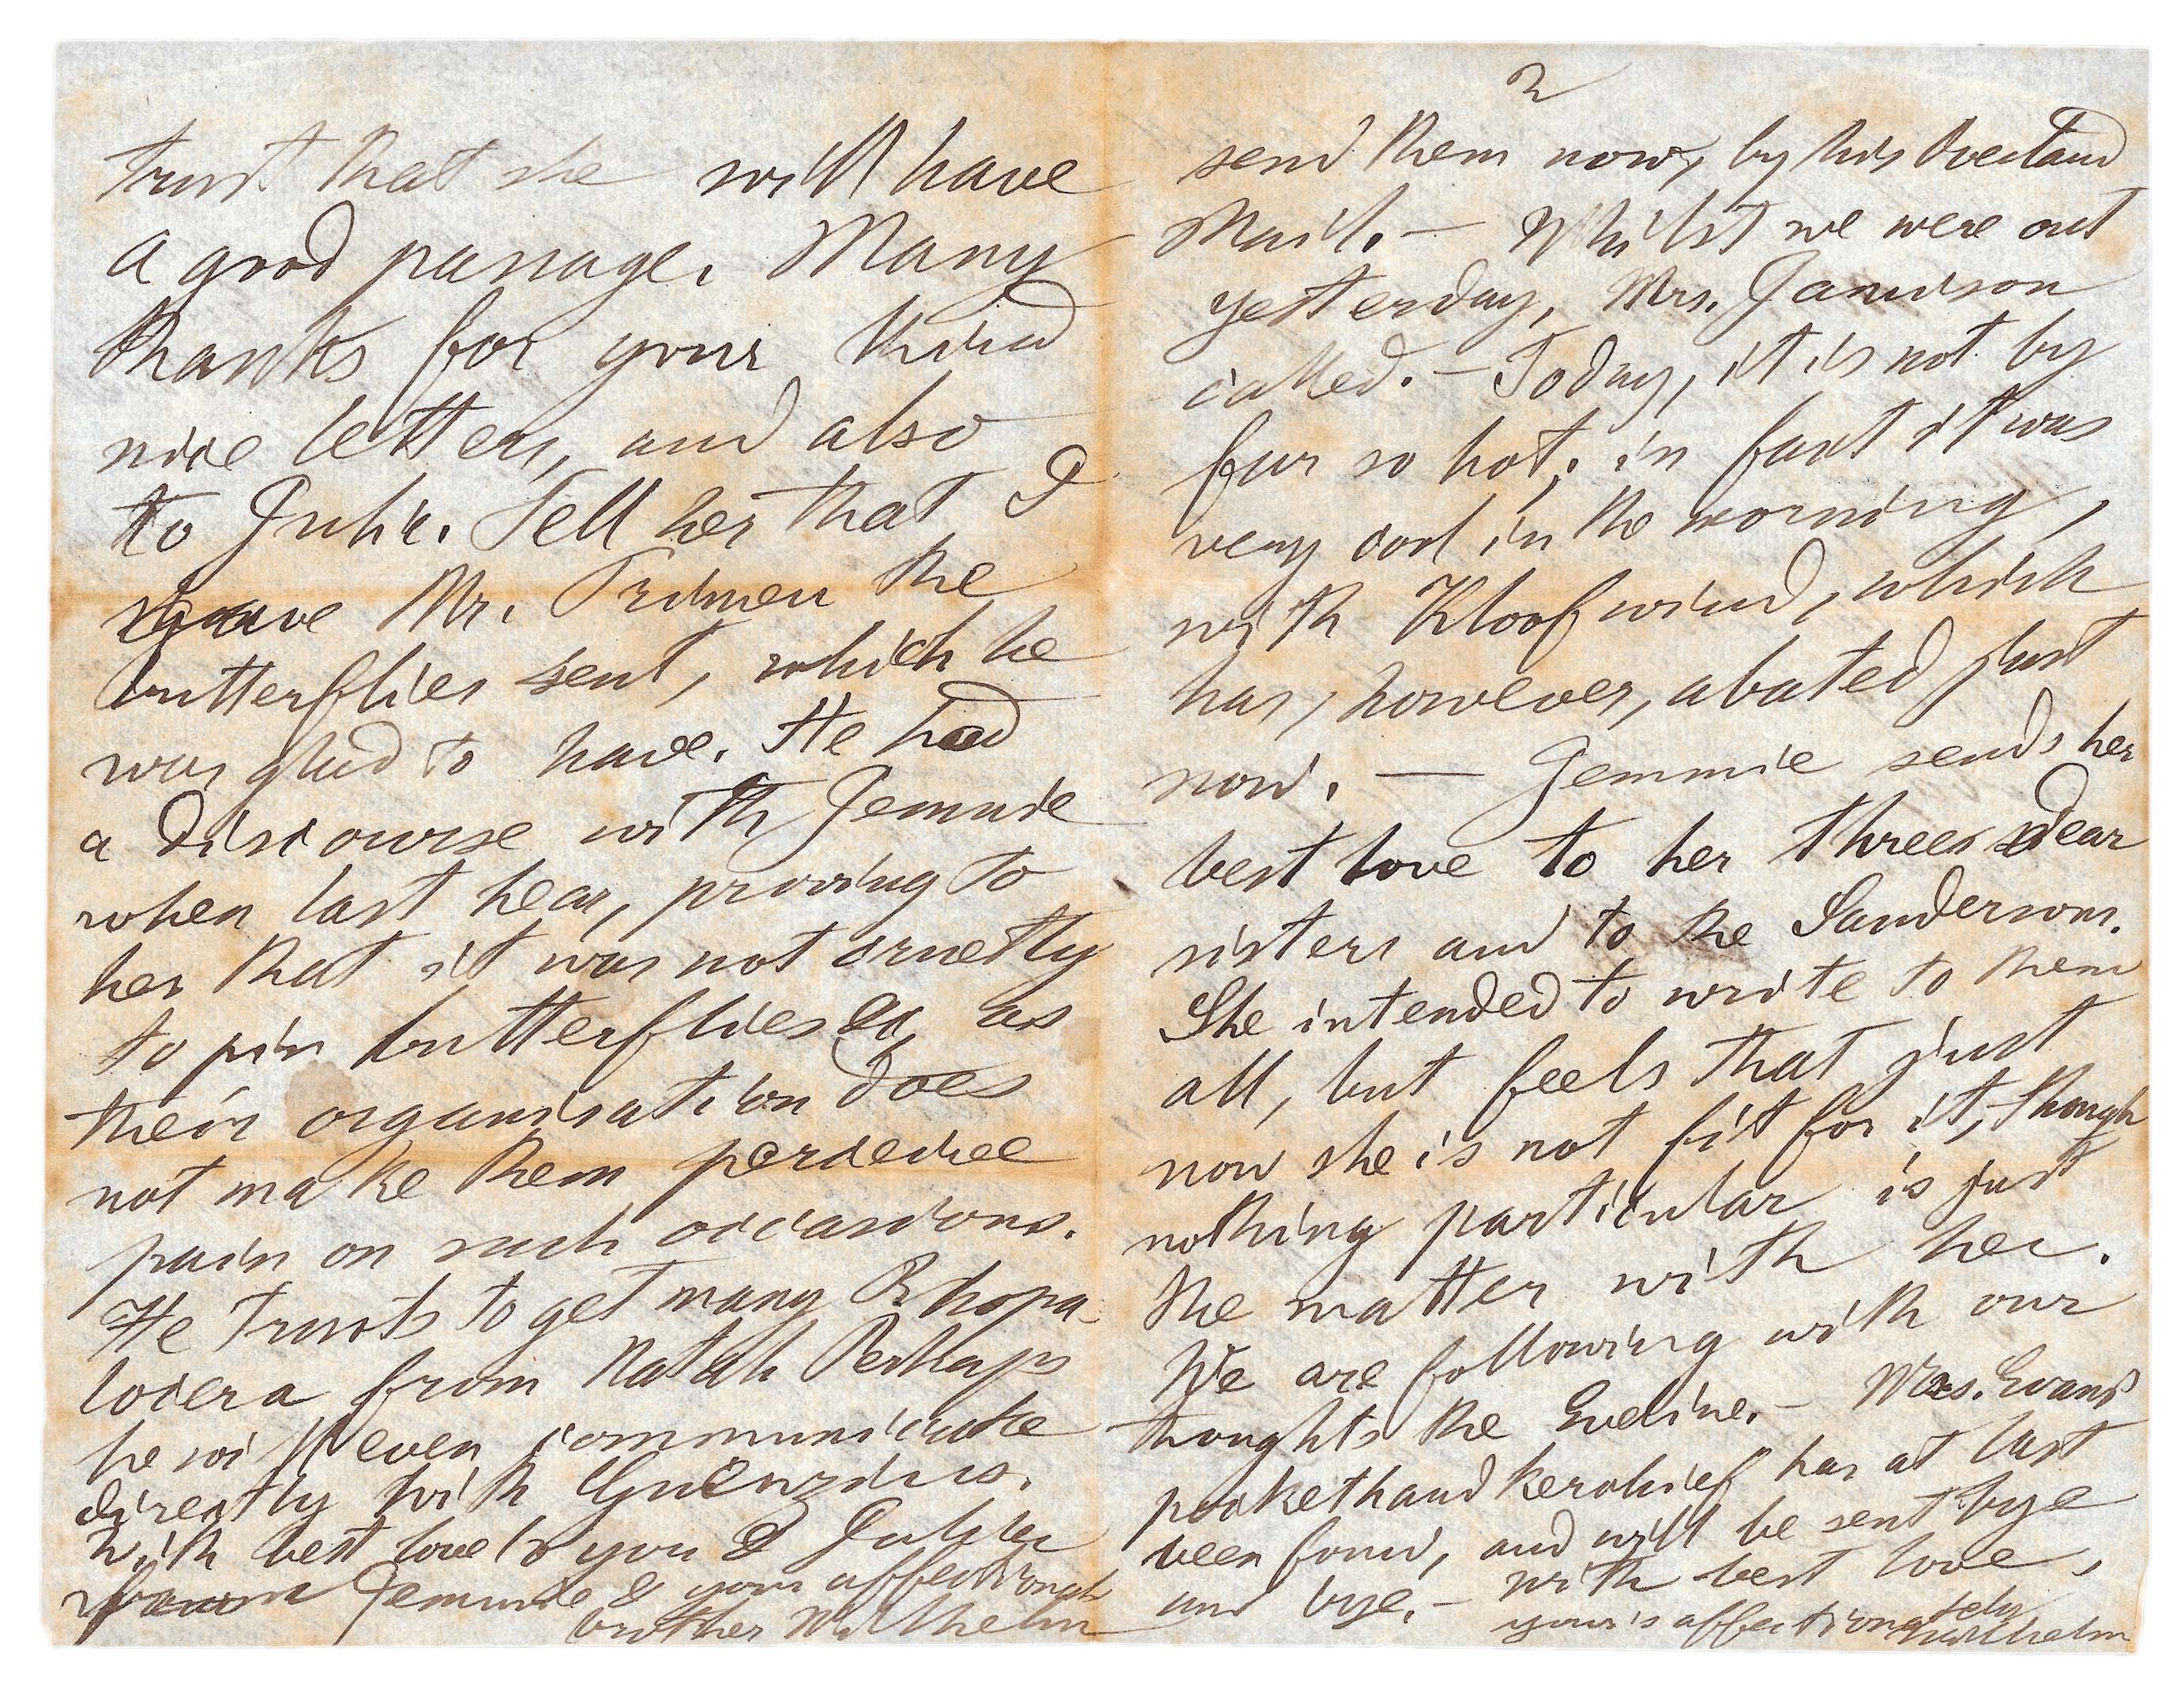 trust that she will have
a good passage. Many
thanks for your kind
nice letters, and also
to Julia. Tell her that I
gave Mr. Trimen the
butterflies sent, which he
was glad to have. He had
a discourse with Jemmie
when last hear, proving to
her that it was not cruelty
to pin butterflies &c, as
their organisation does
not make them perceive
pain on such occasions.
He trusts to get many Rhopa-
locera from Natal. Perhaps
he will even communicate
directly with Gueinzius.
With best love to you & Julia
from Jemmie & your affectionate
brother Wilhelm
2
send them now, by this Overland
Mail. — Whilst we were out
yesterday, Mrs. Jamison
called. — Today, it is not by
far so hot; in fact it was
very cool in the morning,
with Kloof wind, which
has, however, abated just
now. — Jemmie sends her
best love to her three dear
sisters and to the Sandersons.
She intended to write to them
all, but feels that just
now she is not fit for it, though
nothing particular is just
the matter with her.
We are following with our
thoughts the Eveline. — Mrs. Evans'
pockethandkerchief has at last
been found, and will be sent bye
and bye. — with best love,
your's affectionately
Wilhelm